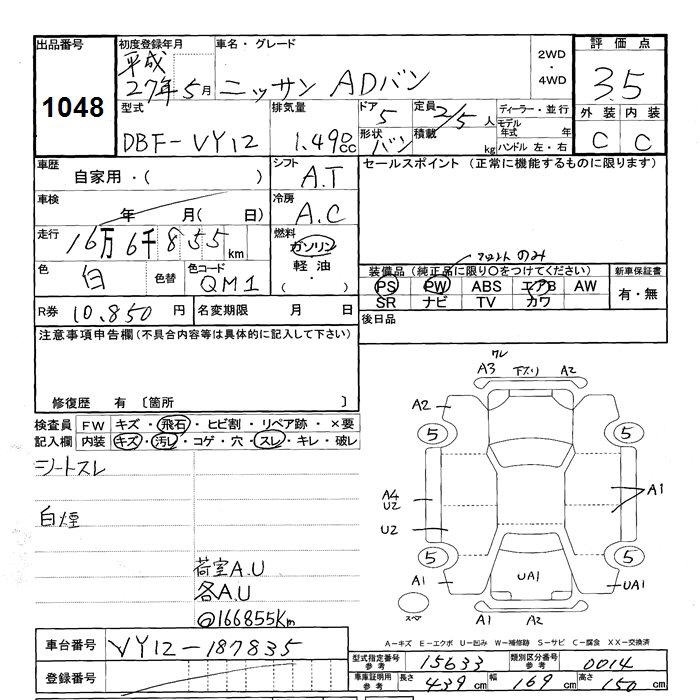 出品番号
1048
初度登録年月
平成
27年5月
車名・グレード
ニッサン ADバン
2WD
・
4WD
評価点
3.5
外装 内装
C C
型式
DBF-VY12
排気量
1.490cc
ドア
5
形状
バン
定員
2/5人
積載
kg
ディーラー・並行
モデル年式 年
ハンドル 左・右
車歴
自家用・( )
シフト
A.T
車検
年 月( 日)
冷房
A.C
走行
16万6千855km
燃料
ガソリン
軽油・
( )
色
白
色替
色コード
QM1
R券 10.850円
名変期限 月 日
セールスポイント(正常に機能するものに限ります)
フロントのみ
装備品(純正品に限り○をつけてください)
PS PW ABS エアB AW
SR ナビ TV カワ
新車保証書
有・無
後日品
注意事項申告欄(不具合内容等は具体的に記入して下さい)
修復歴 有 〔箇所 〕
検査員
記入欄
FW キズ・飛石・ヒビ割・リペア跡・×要
内装 キズ・汚レ・コゲ・穴・スレ・キレ・破レ
シートスレ
白煙
荷室A.U
各A.U
@166855Km
ワレ
A3 下スリ A2
A2
5 5
A4
U2
U2
A1
5 5
A1
UA1
UA1
スペア
A1 A2
A-キズ E-エクボ U-凹み W-補修跡 S-サビ C-腐食 XX-交換済
車台番号 VY12-187835
登録番号
型式指定番号
参考
15633
類別区分番号
参考
0014
車庫証明用
参考
長さ 439cm
幅 169cm
高さ 150cm